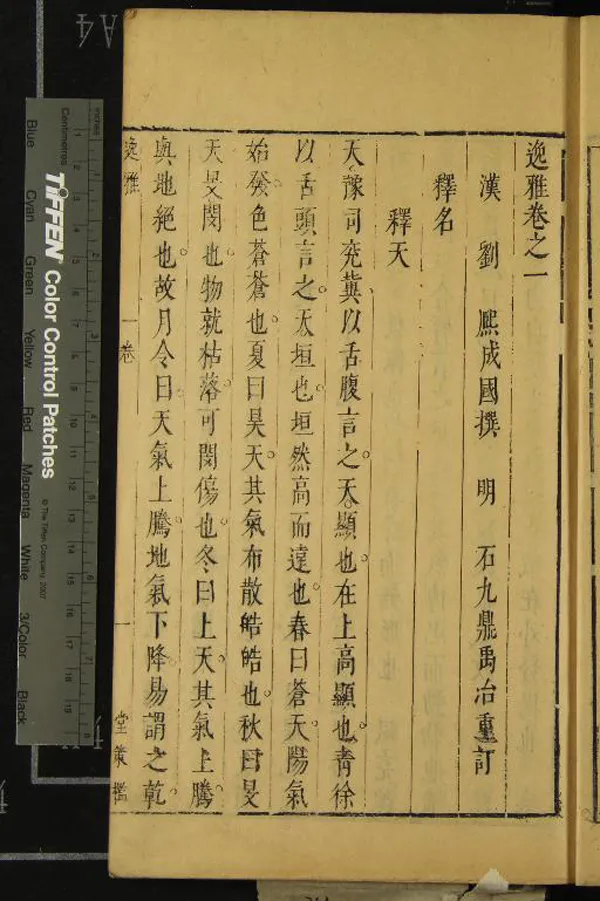 逸雅卷之一
漢 劉 熈成國撰 明 石九鼎禹治重訂
釋名
釋天
天豫司兗冀以舌腹言之天顯也在上高顯也青徐
以舌頭言之天垣也垣然高而遠也春曰蒼天陽氣
始發色蒼蒼也夏曰昊天其氣布散皓皓也秋曰旻
天旻閔也物就枯落可閔傷也冬曰上天其氣上騰
與地絕也故月令曰天氣上騰地氣下降易謂之乾
逸雅 一卷 一 堂策檻
A4
Centimetres
inches
TIFFEN Color Control Patches
© The Tiffen Company, 2007
Blue Cyan Green Yellow Red Magenta White 3/Color Black